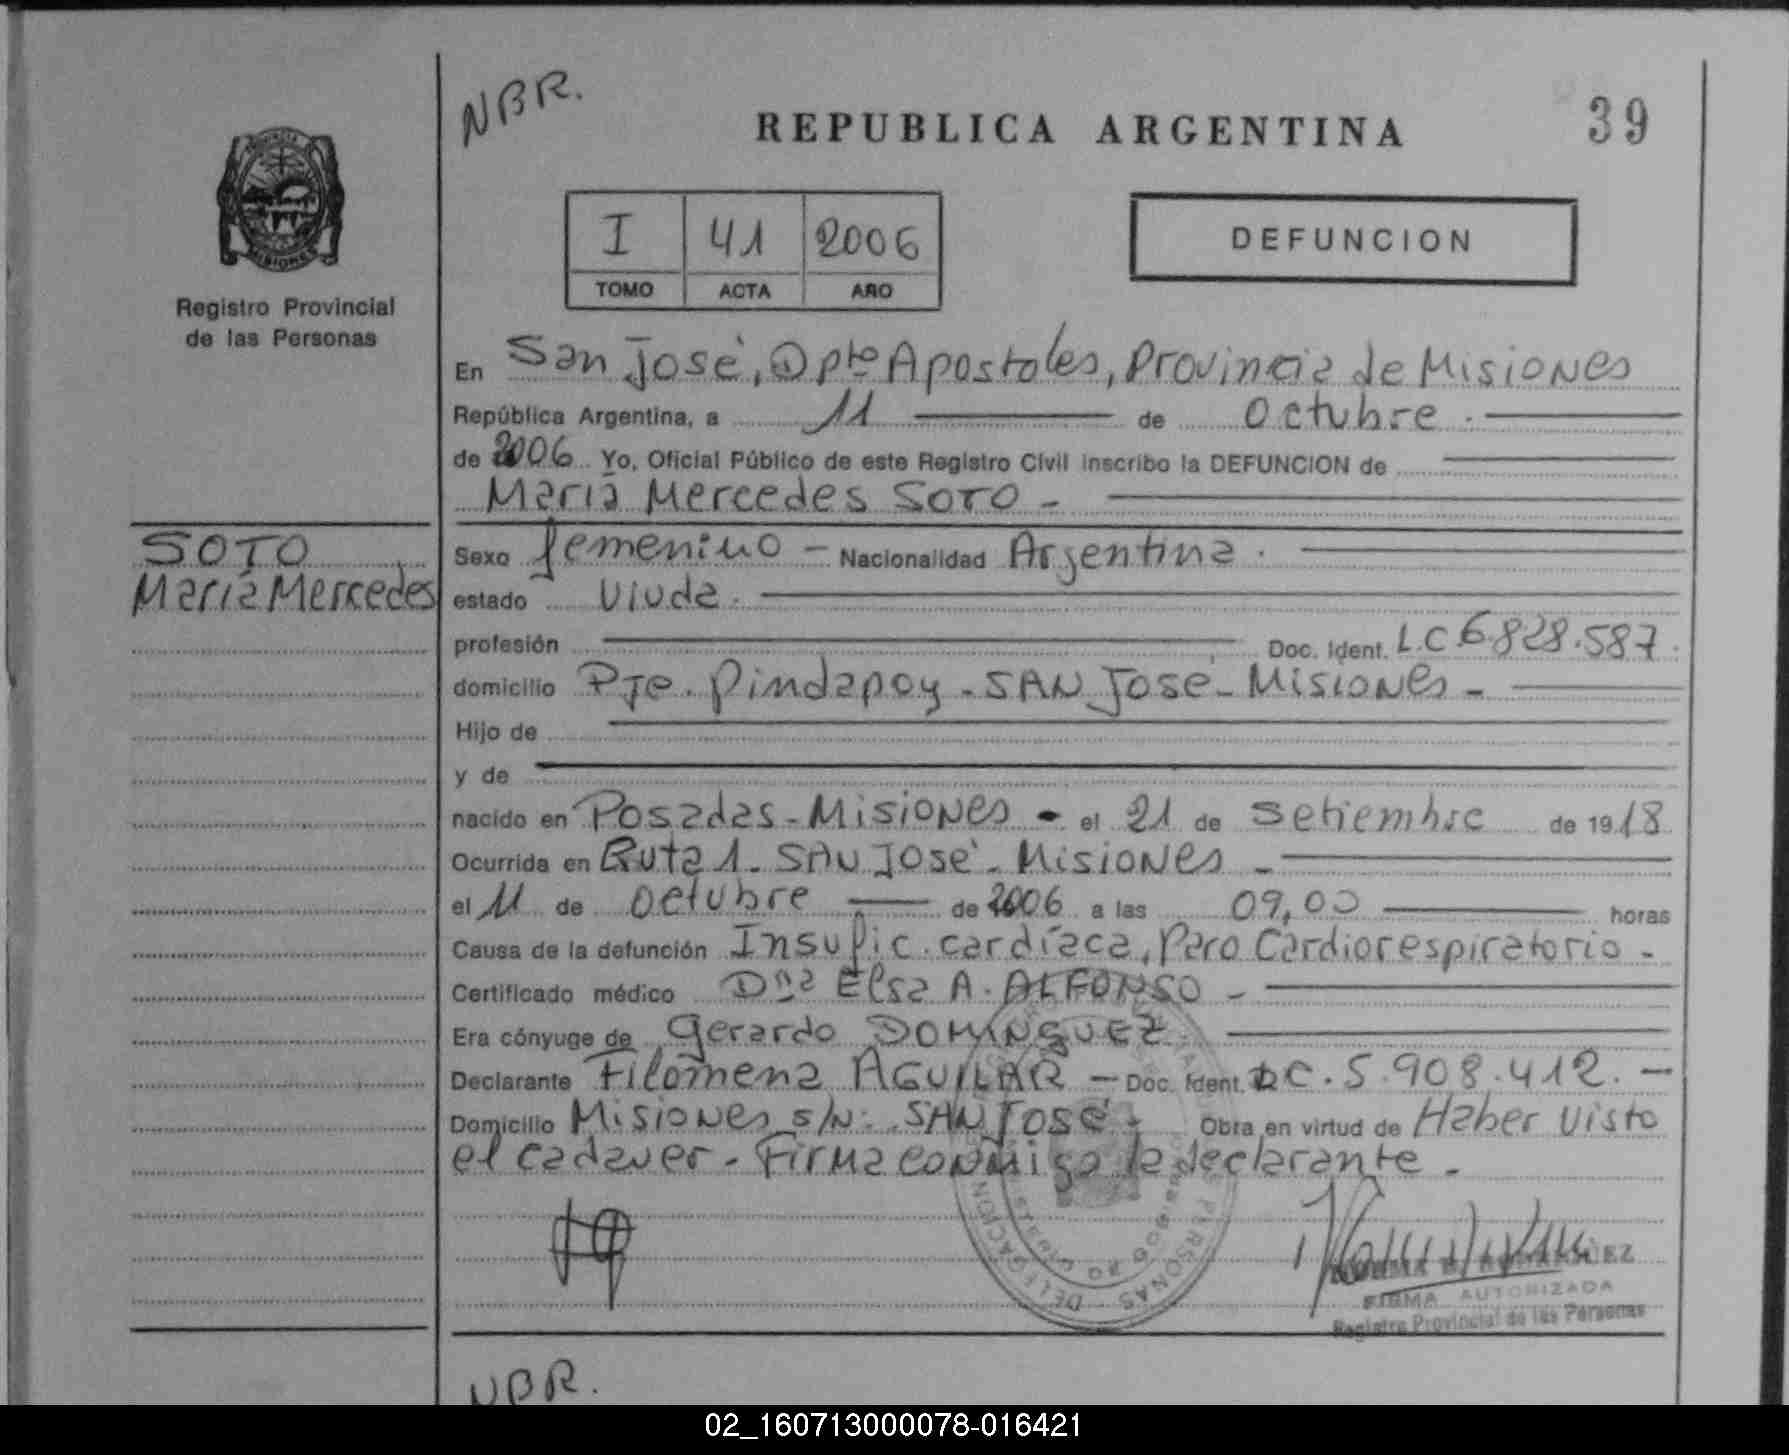 NBR.
REPUBLICA ARGENTINA
39
MISIONES
Registro Provincial
de las Personas
I 41 2006
TOMO ACTA AÑO
DEFUNCION
En San José, Dpto Apostoles, Provincia de Misiones
República Argentina, a 11 de Octubre.
de 2006 Yo, Oficial Público de este Registro Civil inscribo la DEFUNCION de
María Mercedes SOTO -
SOTO
María Mercedes
Sexo femenino - Nacionalidad Argentina.
estado Viuda.
profesión Doc. Ident. L.C 6.828.587.
domicilio Pje. Pindapoy - SAN José - Misiones -
Hijo de
y de
nacido en Posadas - Misiones - el 21 de Setiembre de 1918
Ocurrida en Ruta 1 - SAN José - Misiones -
el 11 de Octubre de 2006 a las 09,00 horas
Causa de la defunción Insufic. cardíaca, Paro Cardiorespiratorio -
Certificado médico Dra Elsa A. ALFONSO -
Era cónyuge de Gerardo DOMINGUEZ
Declarante Filomena AGUILAR - Doc. Ident. LC. 5.908.412. -
Domicilio Misiones s/n. SAN José - Obra en virtud de Haber visto
el cadaver - Firma conmigo la declarante -
DELEGACION PERSONAS
FIRMA AUTORIZADA
Registro Provincial de las Personas
NBR.
02_160713000078-016421